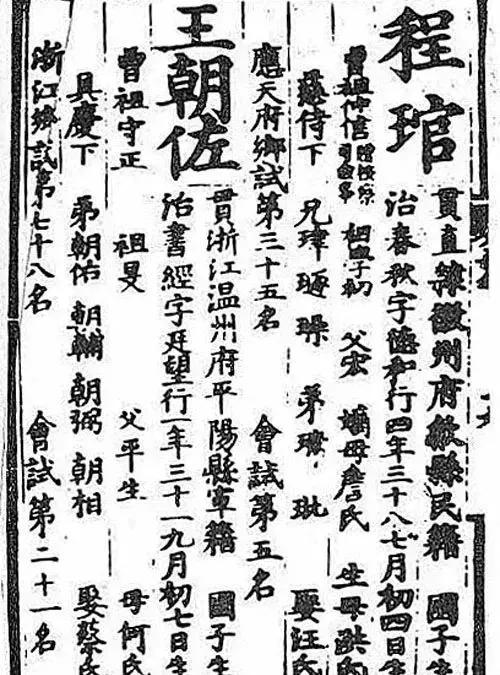 程琯
貫直隸徽州府歙縣民籍 國子生
治春秋字德和行四年三十八七月初四日生
曾祖仲信 祖 父宏 嫡母詹氏 生母洪氏
慈侍下 兄瑋 弟 娶汪氏
應天府鄉試第三十五名 會試第五名
王朝佐
貫浙江温州府平陽縣軍籍 國子生
治書經字廷望行一年三十一九月初七日生
曾祖守正 祖旻 父平生 母何氏
具慶下 弟朝佑 朝輔 朝弼 朝相 娶蔡氏
浙江鄉試第七十八名 會試第二十一名